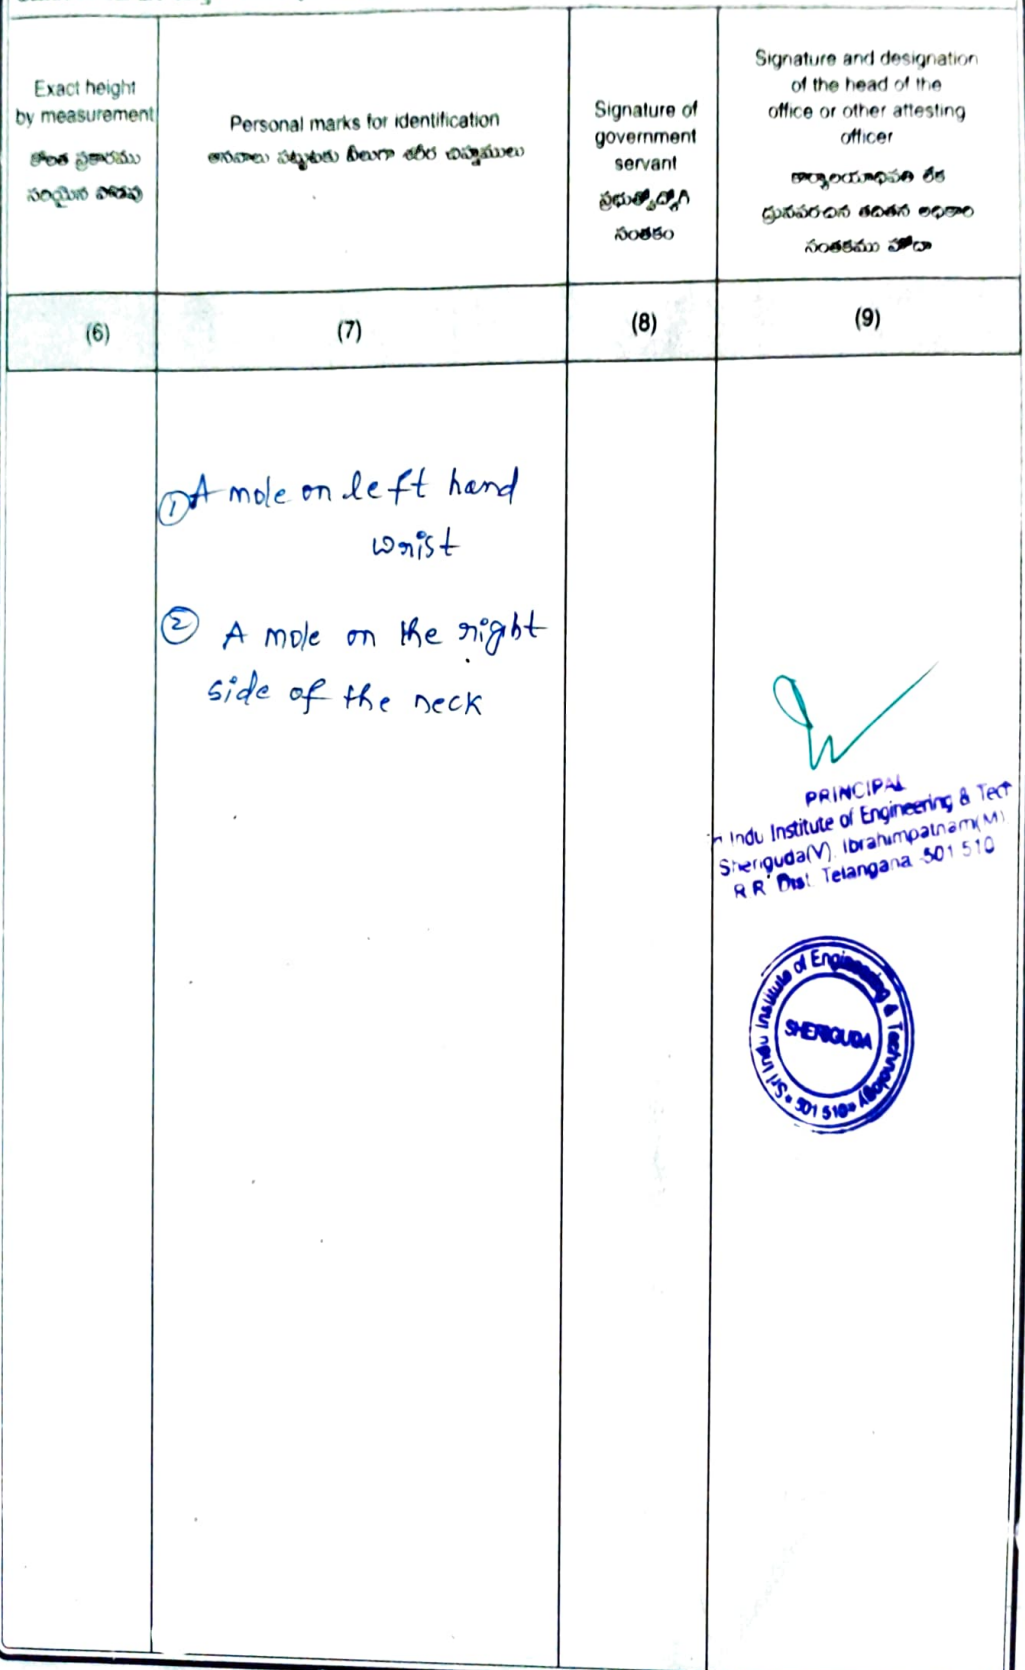 Exact height
by measurement
కొలత ప్రకారము
సరియైన పొడవు
Personal marks for identification
ఆనవాలు పట్టుటకు వీలుగా శరీర చిహ్నములు
Signature of
government
servant
ప్రభుత్వోద్యోగి
సంతకం
Signature and designation
of the head of the
office or other attesting
officer
కార్యాలయాధిపతి లేక
ధ్రువపరచిన తదితర అధికారి
సంతకము హోదా
(6)
(7)
(8)
(9)
① A mole on left hand
wrist
② A mole on the right
side of the neck
PRINCIPAL
Indu Institute of Engineering & Tech
Sheriguda(V), Ibrahimpatnam(M)
R.R. Dist. Telangana-501 510
Sri Indu Institute of Engineering & Technology
SHERIGUDA
501 510